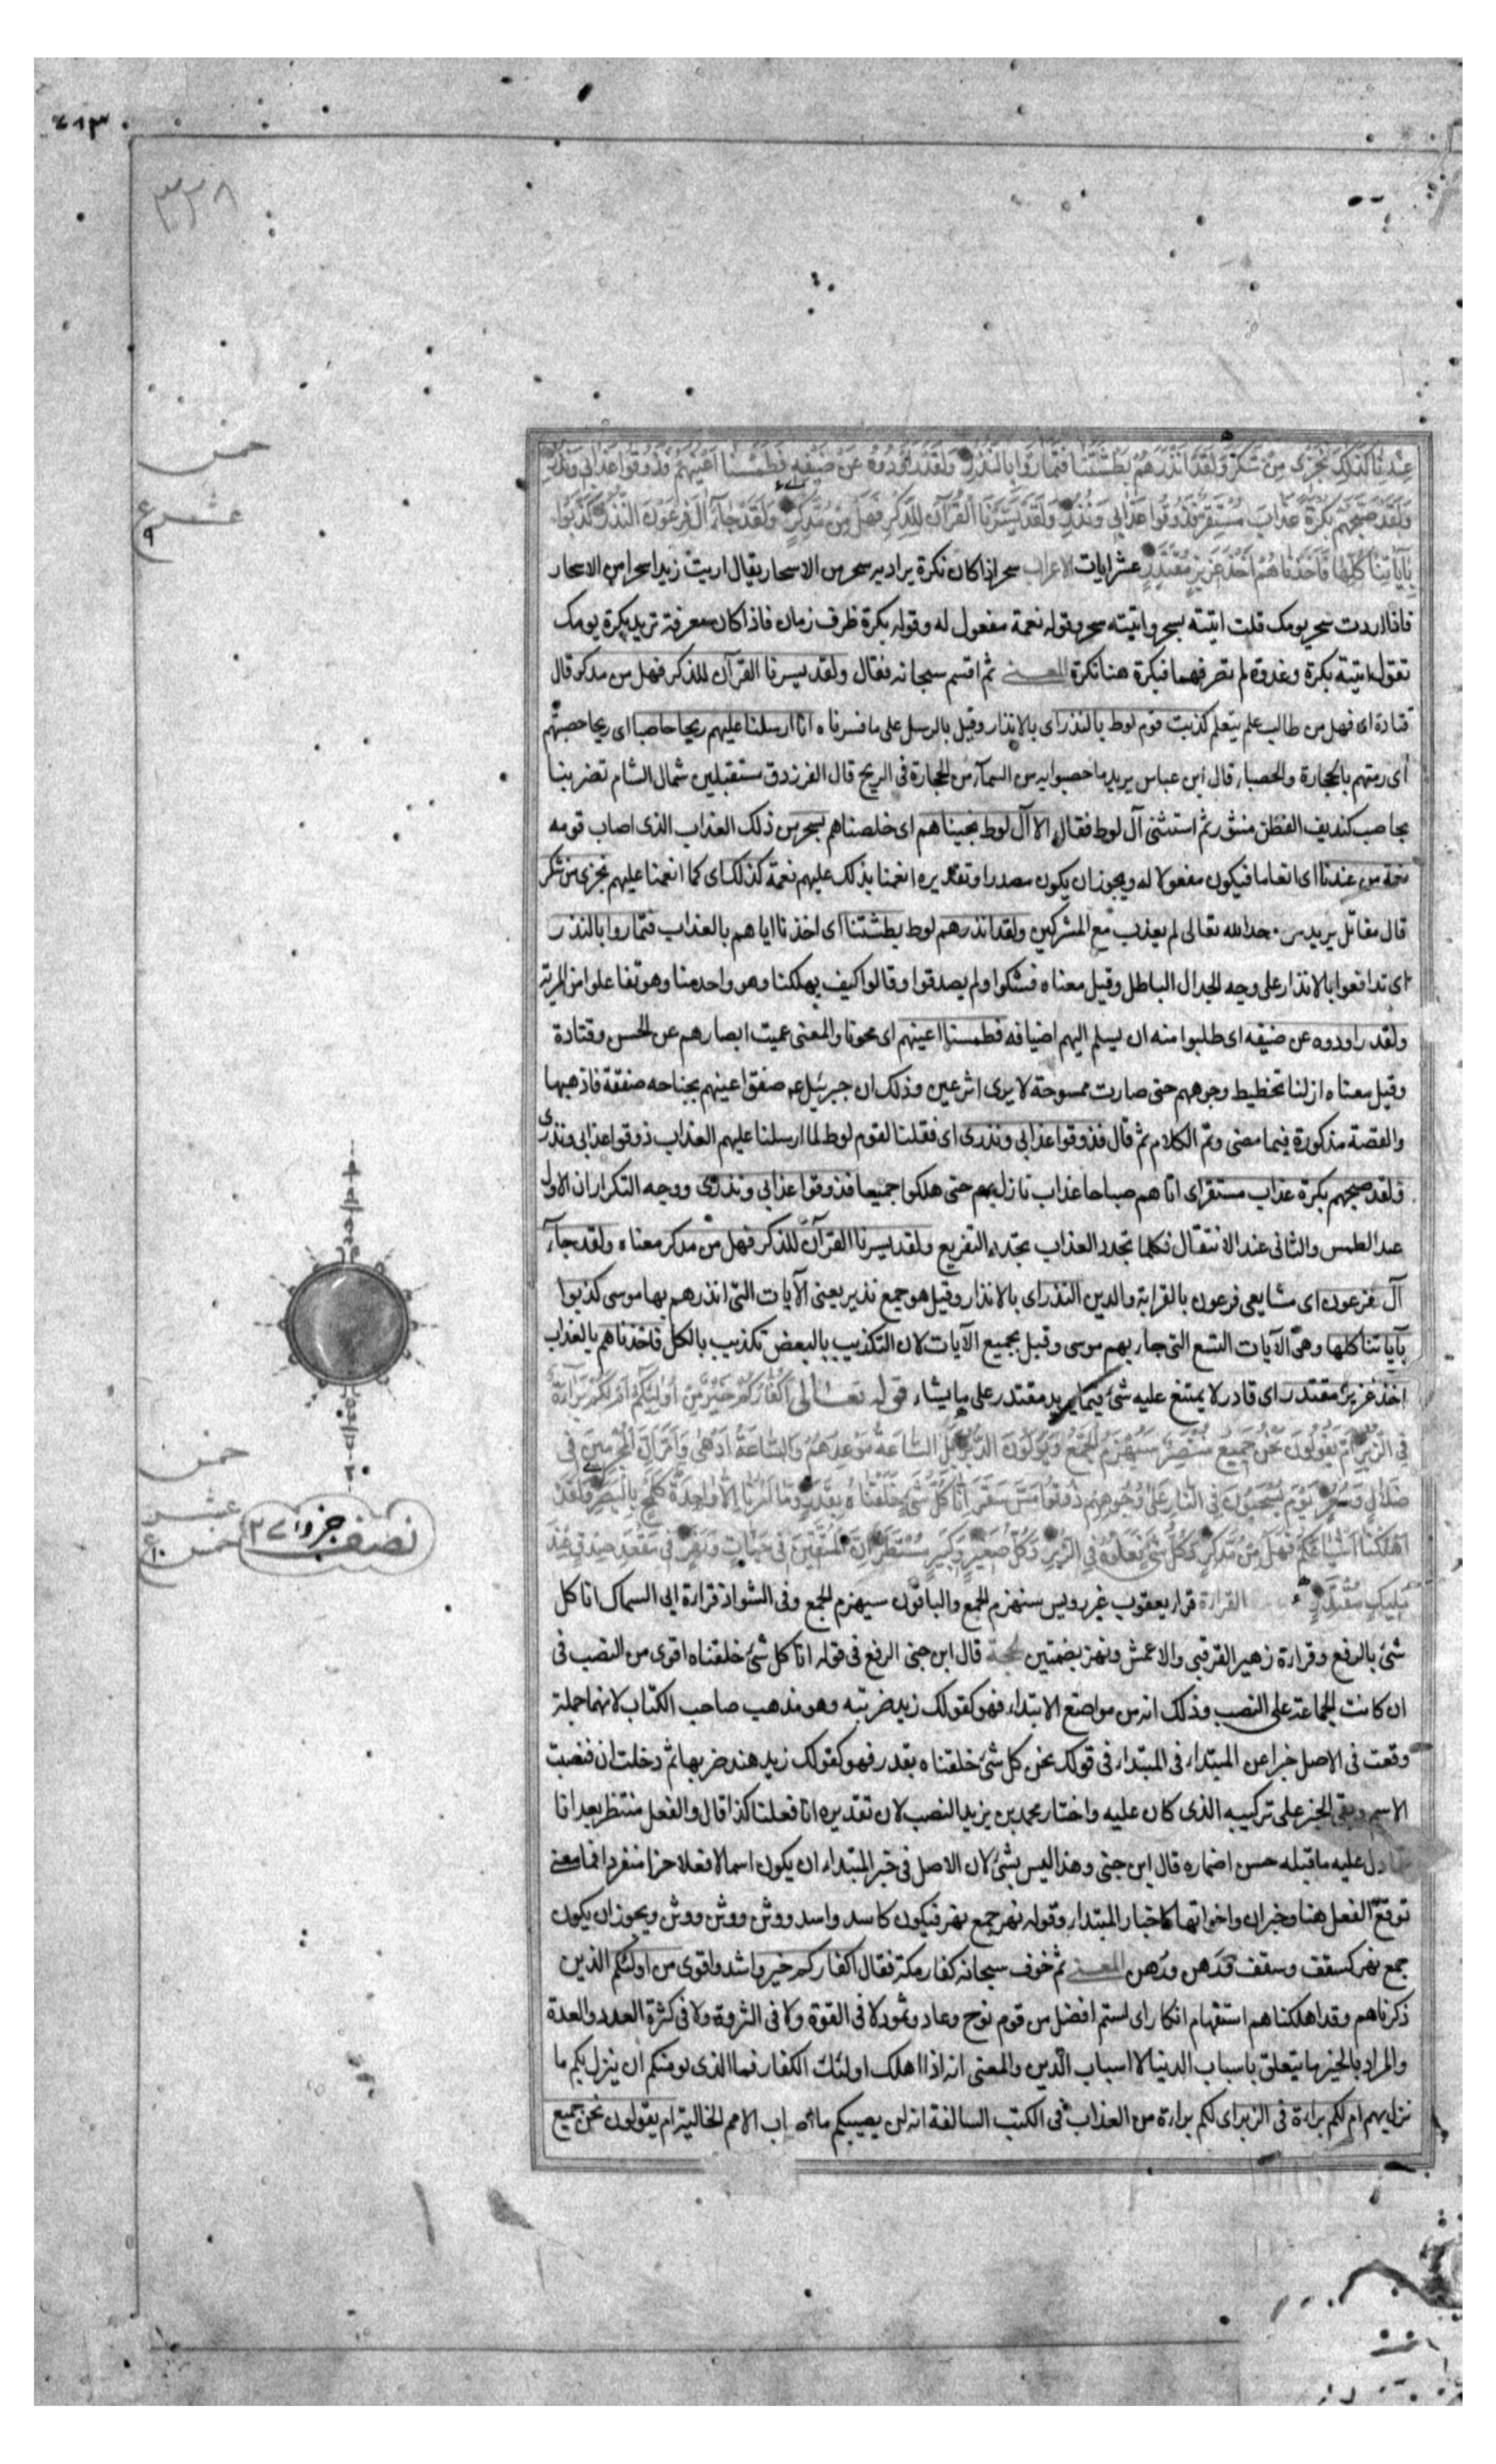 ٤٨٣
٣٢٨
خمس
عشر ع
٩
عِنْدِنَا كَذَلِكَ نَجْزِي مَنْ شَكَرَ وَلَقَدْ أَنْذَرَهُمْ بَطْشَتَنَا فَتَمَارَوْا بِالنُّذُرِ وَلَقَدْ رَاوَدُوهُ عَنْ ضَيْفِهِ فَطَمَسْنَا أَعْيُنَهُمْ فَذُوقُوا عَذَابِي وَنُذُرِ
وَلَقَدْ صَبَّحَهُمْ بُكْرَةً عَذَابٌ مُسْتَقِرٌّ فَذُوقُوا عَذَابِي وَنُذُرِ وَلَقَدْ يَسَّرْنَا الْقُرْآنَ لِلذِّكْرِ فَهَلْ مِنْ مُدَّكِرٍ وَلَقَدْ جَاءَ آلَ فِرْعَوْنَ النُّذُرُ كَذَّبُوا
بِآيَاتِنَا كُلِّهَا فَأَخَذْنَاهُمْ أَخْذَ عَزِيزٍ مُقْتَدِرٍ عشر ايات الاعراب سحر اذا كان نكرة يراد به سحر من الاسحار يقال اريت زيدا سحرا من الاسحار
فاذا اردت سحر يومك قلت اتيته بسحر واتيته سحر وقوله نعمة مفعول له وقوله بكرة ظرف زمان فاذا كان معرفة تريد بكرة يومك
تقول اتيته بكرة وغدوة لم تصرفهما فبكرة هنا نكرة المعنى ثم اقسم سبحانه فقال ولقد يسرنا القرآن للذكر فهل من مدكر قال
قتادة اى فهل من طالب علم يتعلم كذبت قوم لوط بالنذر اى بالانذار وقيل بالرسل على ما فسرناه انا ارسلنا عليهم ريحا حاصبا اى ريحا حصبتهم
اى رمتهم بالحجارة والحصباء قال ابن عباس يريد ما حصبوا به من السمآء من الحجارة فى الريح قال الفرزدق مستقبلين شمال الشام تضربنا
بحاصب كنديف القطن منثور ثم استثنى آل لوط فقال الا آل لوط نجيناهم اى خلصناهم بسحر من ذلك العذاب الذى اصاب قومه
نعمة من عندنا اى انعاما فيكون مفعولا له ويجوز ان يكون مصدرا وتقديره انعمنا بذلك عليهم نعمة كذلك اى كما انعمنا عليهم نجزى من شكر
قال مقاتل يريد من وحد الله تعالى لم يعذب مع المشركين ولقد انذرهم لوط بطشتنا اى اخذنا اياهم بالعذاب فتماروا بالنذر
اى تدافعوا بالانذار على وجه الجدال الباطل وقيل معناه فشكوا ولم يصدقوا وقالوا كيف يهلكنا وهو واحد منا وهو تفاعلوا من المرية
ولقد راودوه عن ضيفه اى طلبوا منه ان يسلم اليهم اضيافه فطمسنا اعينهم اى محونا والمعنى عميت ابصارهم عن الحسن وقتادة
وقيل معناه ازلنا تخطيط وجوههم حتى صارت ممسوحة لا يرى اثر عين وذلك ان جبرئيل عم صفق اعينهم بجناحه صفقة فاذهبها
والقصة مذكورة فيما مضى وتم الكلام ثم قال فذوقوا عذابى ونذرى اى فقلنا لقوم لوط لما ارسلنا عليهم العذاب ذوقوا عذابى ونذرى
ولقد صبحهم بكرة عذاب مستقر اى اتاهم صباحا عذاب نازل بهم حتى هلكوا جميعا فذوقوا عذابى ونذرى ووجه التكرار ان الاول
عند الطمس والثانى عند الانتقال فكلما تجدد العذاب تجدد التقريع ولقد يسرنا القرآن للذكر فهل من مدكر معناه ولقد جآء
آل فرعون اى مشايعى فرعون بالقرابة والدين النذر اى بالانذار وقيل هو جمع نذير يعنى الآيات التى انذرهم بها موسى كذبوا
بآياتنا كلها وهى الآيات التسع التى جاء بهم موسى وقيل بجميع الآيات لان التكذيب بالبعض تكذيب بالكل فاخذناهم بالعذاب
اخذ عزيز مقتدر اى قادر لا يمتنع عليه شئ فيما يريد مقتدر على ما يشاء قوله تعالى أَكُفَّارُكُمْ خَيْرٌ مِنْ أُولَئِكُمْ أَمْ لَكُمْ بَرَاءَةٌ
فِي الزُّبُرِ أَمْ يَقُولُونَ نَحْنُ جَمِيعٌ مُنْتَصِرٌ سَيُهْزَمُ الْجَمْعُ وَيُوَلُّونَ الدُّبُرَ بَلِ السَّاعَةُ مَوْعِدُهُمْ وَالسَّاعَةُ أَدْهَى وَأَمَرُّ إِنَّ الْمُجْرِمِينَ فِي
ضَلَالٍ وَسُعُرٍ يَوْمَ يُسْحَبُونَ فِي النَّارِ عَلَى وُجُوهِهِمْ ذُوقُوا مَسَّ سَقَرَ إِنَّا كُلَّ شَيْءٍ خَلَقْنَاهُ بِقَدَرٍ وَمَا أَمْرُنَا إِلَّا وَاحِدَةٌ كَلَمْحٍ بِالْبَصَرِ وَلَقَدْ
أَهْلَكْنَا أَشْيَاعَكُمْ فَهَلْ مِنْ مُدَّكِرٍ وَكُلُّ شَيْءٍ فَعَلُوهُ فِي الزُّبُرِ وَكُلُّ صَغِيرٍ وَكَبِيرٍ مُسْتَطَرٌ إِنَّ الْمُتَّقِينَ فِي جَنَّاتٍ وَنَهَرٍ فِي مَقْعَدِ صِدْقٍ عِنْدَ
مَلِيكٍ مُقْتَدِرٍ القراءة قرا يعقوب غير رويس سنهزم الجمع والباقون سيهزم الجمع وفى الشواذ قراءة ابى السماك انا كل
شئ بالرفع وقراءة زهير القرقبى والاعمش ونهر بضمتين الحجة قال ابن جنى الرفع فى قوله انا كل شئ خلقناه اقوى من النصب فى
ان كانت الجماعة على النصب وذلك انه من مواضع الابتداء فهو كقولك زيد ضربته وهو مذهب صاحب الكتاب لانهما جملة
وقعت فى الاصل خبرا عن المبتداء فى المبتداء فى قولك نحن كل شئ خلقناه بقدر فهو كقولك زيد هند ضربها ثم دخلت ان فنصبت
الاسم وبقى الخبر على تركيبه الذى كان عليه واختار محمد بن يزيد النصب لان تقديره انا فعلنا كذا قال والفعل منتظر بعد انا
دل عليه ما قبله حسن اضماره قال ابن جنى وهذا ليس بشئ لان الاصل فى خبر المبتداء ان يكون اسما لا فعلا جزا منفردا فما معنى
توقع الفعل هنا وخبر ان واخواتها كاخبار المبتداء وقوله نهر جمع نهر فيكون كاسد واسد ووثن ووثن ويجوز ان يكون
جمع نهر كسقف وسقف ورَهن ورُهن المعنى ثم خوف سبحانه كفار مكة فقال اكفاركم خير واشد واقوى من اولئكم الذين
ذكرناهم وقد اهلكناهم استفهام انكار اى لستم افضل من قوم نوح وعاد وثمود لا فى القوة ولا فى الثروة ولا فى كثرة العدد والعدة
والمراد بالخير ما يتعلق باسباب الدنيا لا اسباب الدين والمعنى انه اذا اهلك اولئك الكفار فما الذى يومنكم ان ينزل بكم ما
نزل بهم ام لكم براءة فى الزبر اى لكم براءة من العذاب فى الكتب السالفة انه لن يصيبكم ما اصاب الامم الخالية ام يقولون نحن جميع
خمس
عشر
خمس
ع ١٠
نصف جزو ٢٧